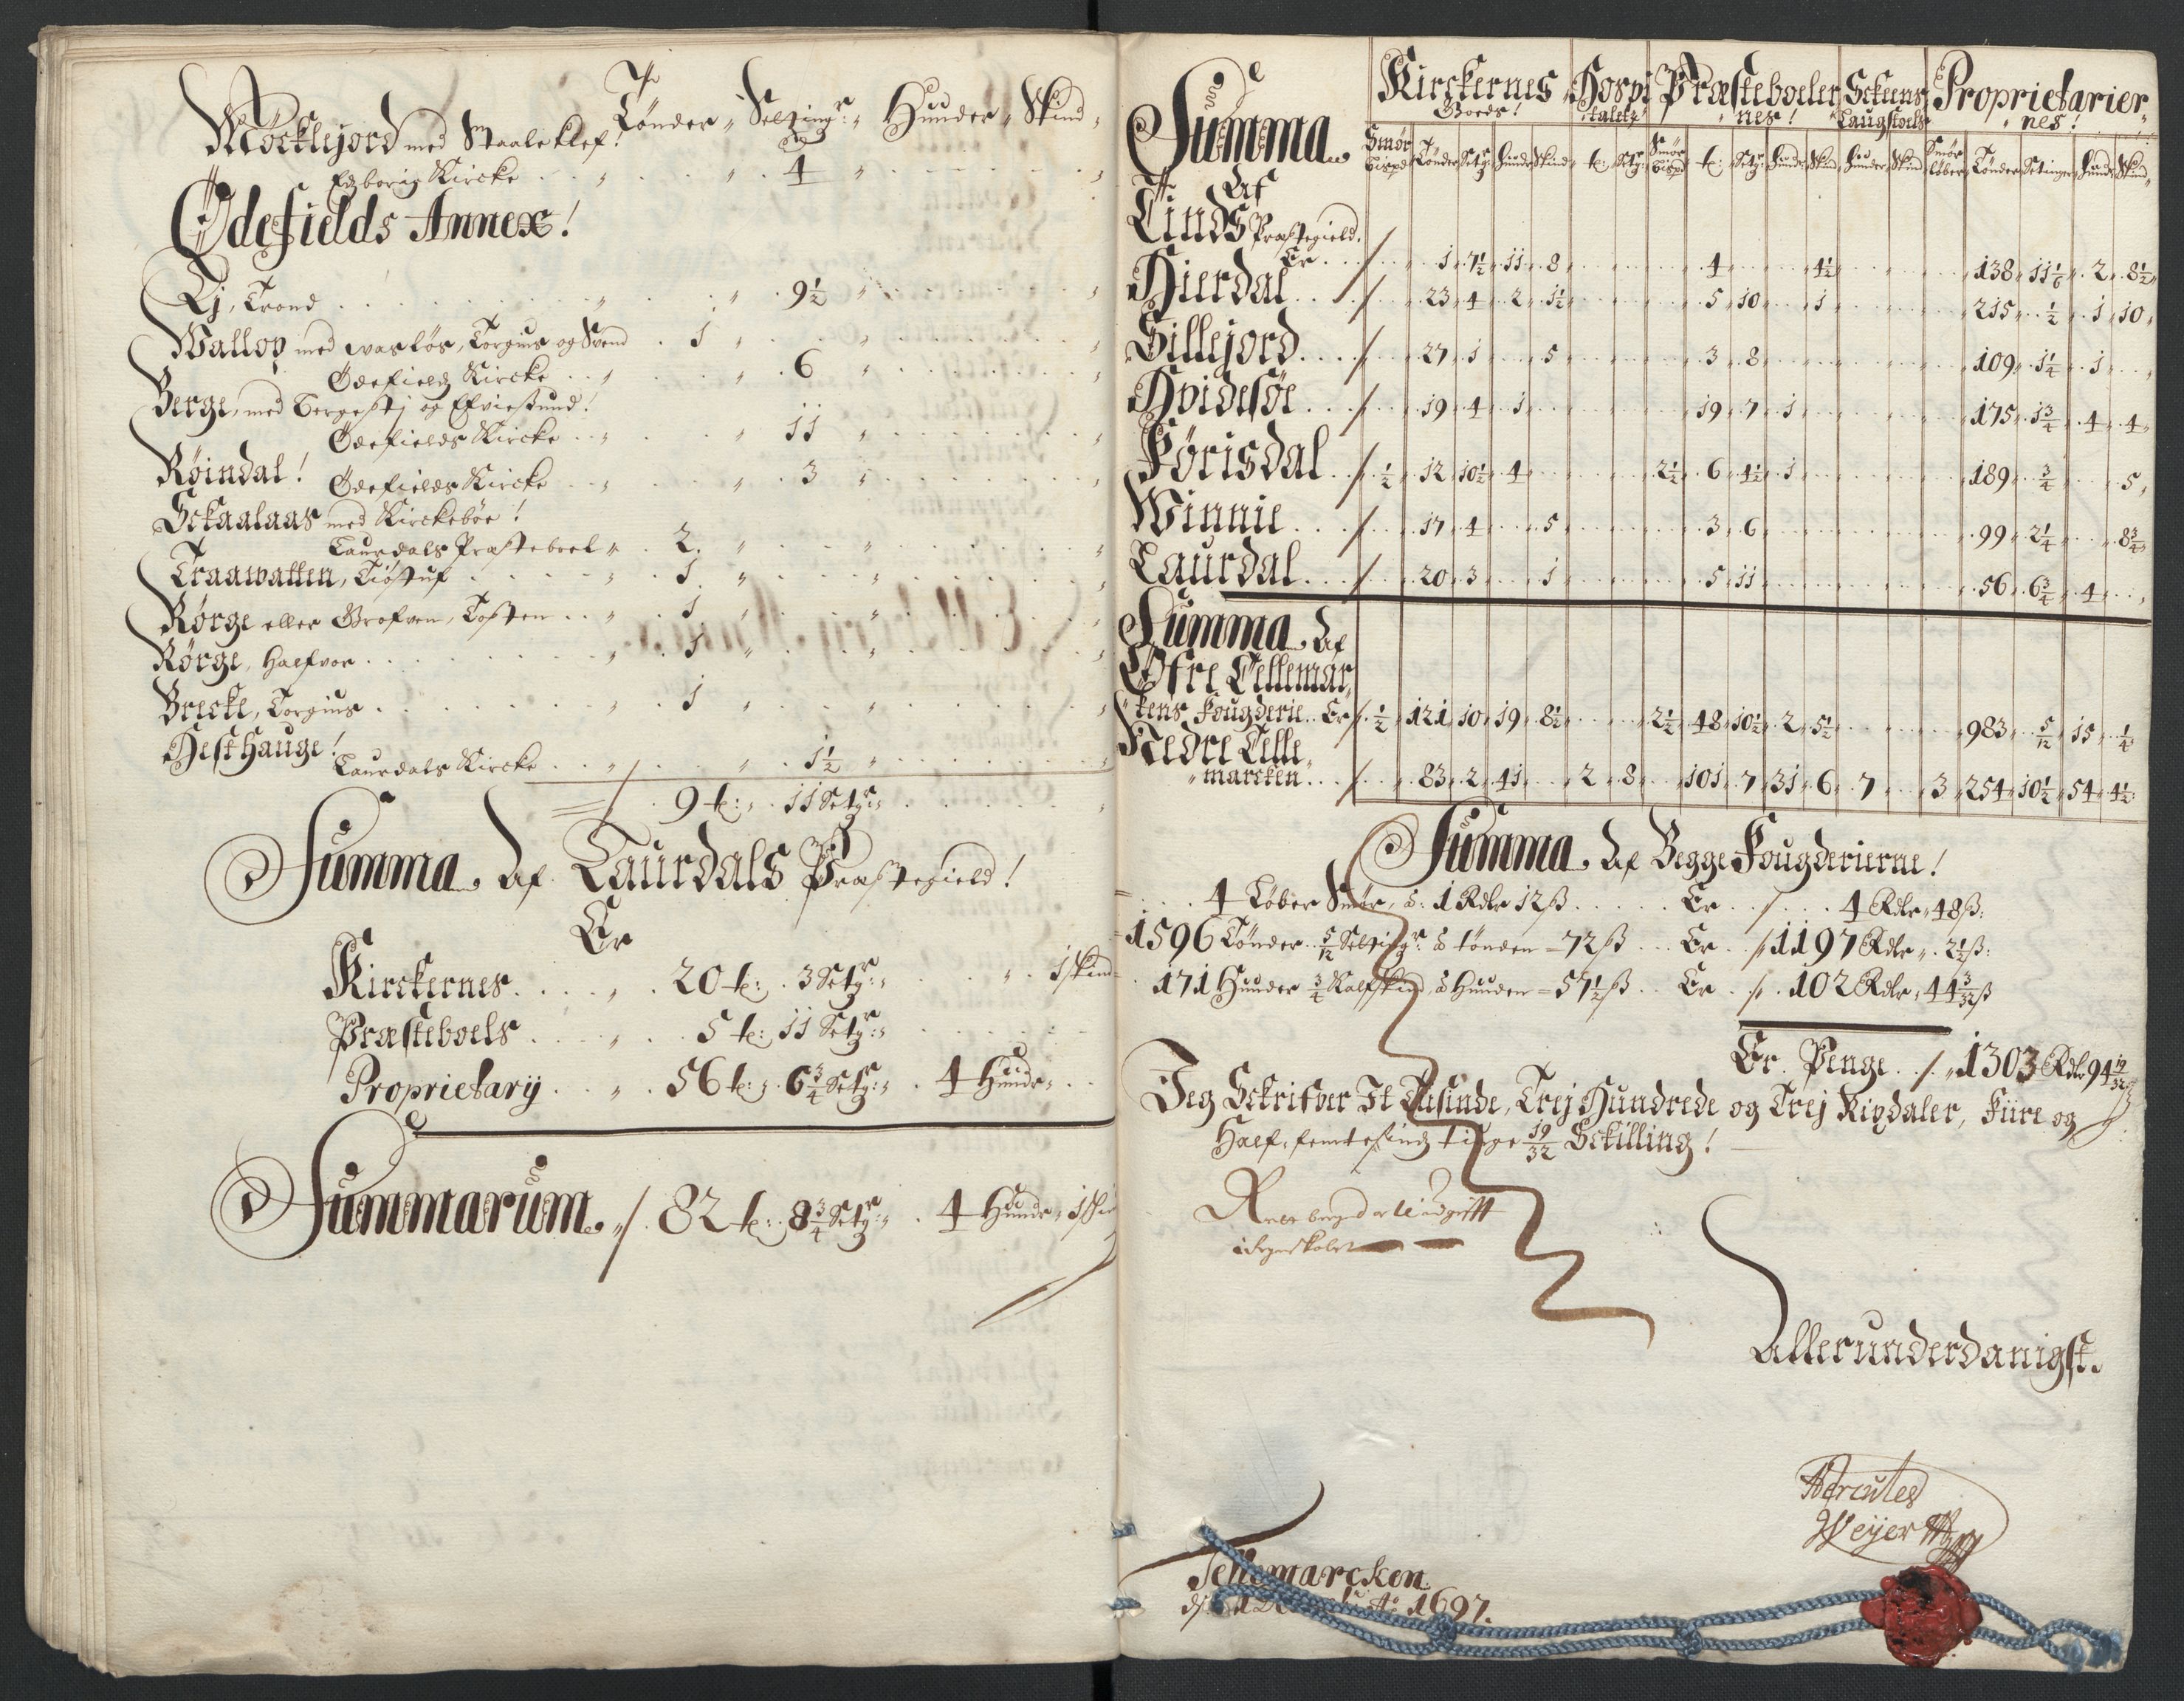 Tønder Setting: Huuder Skind
Möcklejord med Staaleklef!
Eidzborig Kircke 4
Ödefields Annex!
Ej, Trond 9½
Wallop med wasløs, Torgius og Svend 1
Ödefields Kircke 6
Berge, med Bergestj og Efviestund!
Ödefields Kircke 11
Røindal!
Ödefields Kircke 3
Sckaalaas med Kirckebøe!
Laurdals Præsteboel 2
Traawatten, Tiøstuf 1
Rørge eller Grofven, Tosten 1
Rørge, Halfvor 1
Brecke, Torgius 1
Hest Hauge!
Laurdals Kircke 1½
9 t: 11 Setgr:
Summa Af Laurdals Præstegield!
Er
Kirckernes 20 t: 3 Setgr: 1 skind
Præsteboels 5 t: 11 Setgr:
Proprietarij 56 t: 6¾ Setgr: 4 Hunder
Summarum 82 t: 8¾ Setgr: 4 Hunder 1 Ski
Kirckernes Goeds! Hospitaletz Præsteboelernes! Sckeens Laugstoels Proprietariernes!
Summa
Smør Bispd Tønder Setgr Hunder Skind t: Setgr: Smør Bispd t: Setgr Hunder Skind Hunder Skind Smør løber Tønder Setinger Hunder Skind
Af
Tinds Præstegield
Er 1 7½ 11 8 4 4½ 138 11⅙ 2 8½
Hierdal 23 4 2 1½ 5 10 1 215 ½ 1 10
Sillejord 27 1 5 3 8 109 1¼ 1
Hvidesøe 19 4 1 19 7 1 175 1¾ 4 4
Førisdal ½ 12 10½ 4 2½ 6 4½ 1 189 ¾ 5
Winnie 17 4 5 3 6 99 2¼ 8¾
Laurdal 20 3 1 5 11 56 6¾ 4
Summa Af
Øfre Tellemar
kens Fougderie Er ½ 121 10 19 8½ 2½ 48 10½ 2 5½ 983 5/12 15 ¼
Nedre Telle
marcken 83 2 41 2 8 101 7 31 6 7 3 254 10½ 54 4½
Summa Af Begge Fougderierne!
4 Løber Smør, à: 1 Rdlr 12 ß Er 4 Rdlr 48 ß:
1596 Tønder 5/12 Settingr à tønden = 72 ß Er 1197 Rdlr 2½ ß:
171 Huuder ¾ Kalfskind à Huuden = 57½ ß Er 102 Rdlr 44 3/32 ß
Er Penge 1303 Rdlr 94 19/32 ß
Jeg Sckrifver It Tusinde, Trej Hundrede og Trej Rixdaler, Fiire og
Half femtesindtiuge 19/32 Sckilling!
Allerunderdanigst
Hercules
Weyer
Tellemarcken
Ao 1697.